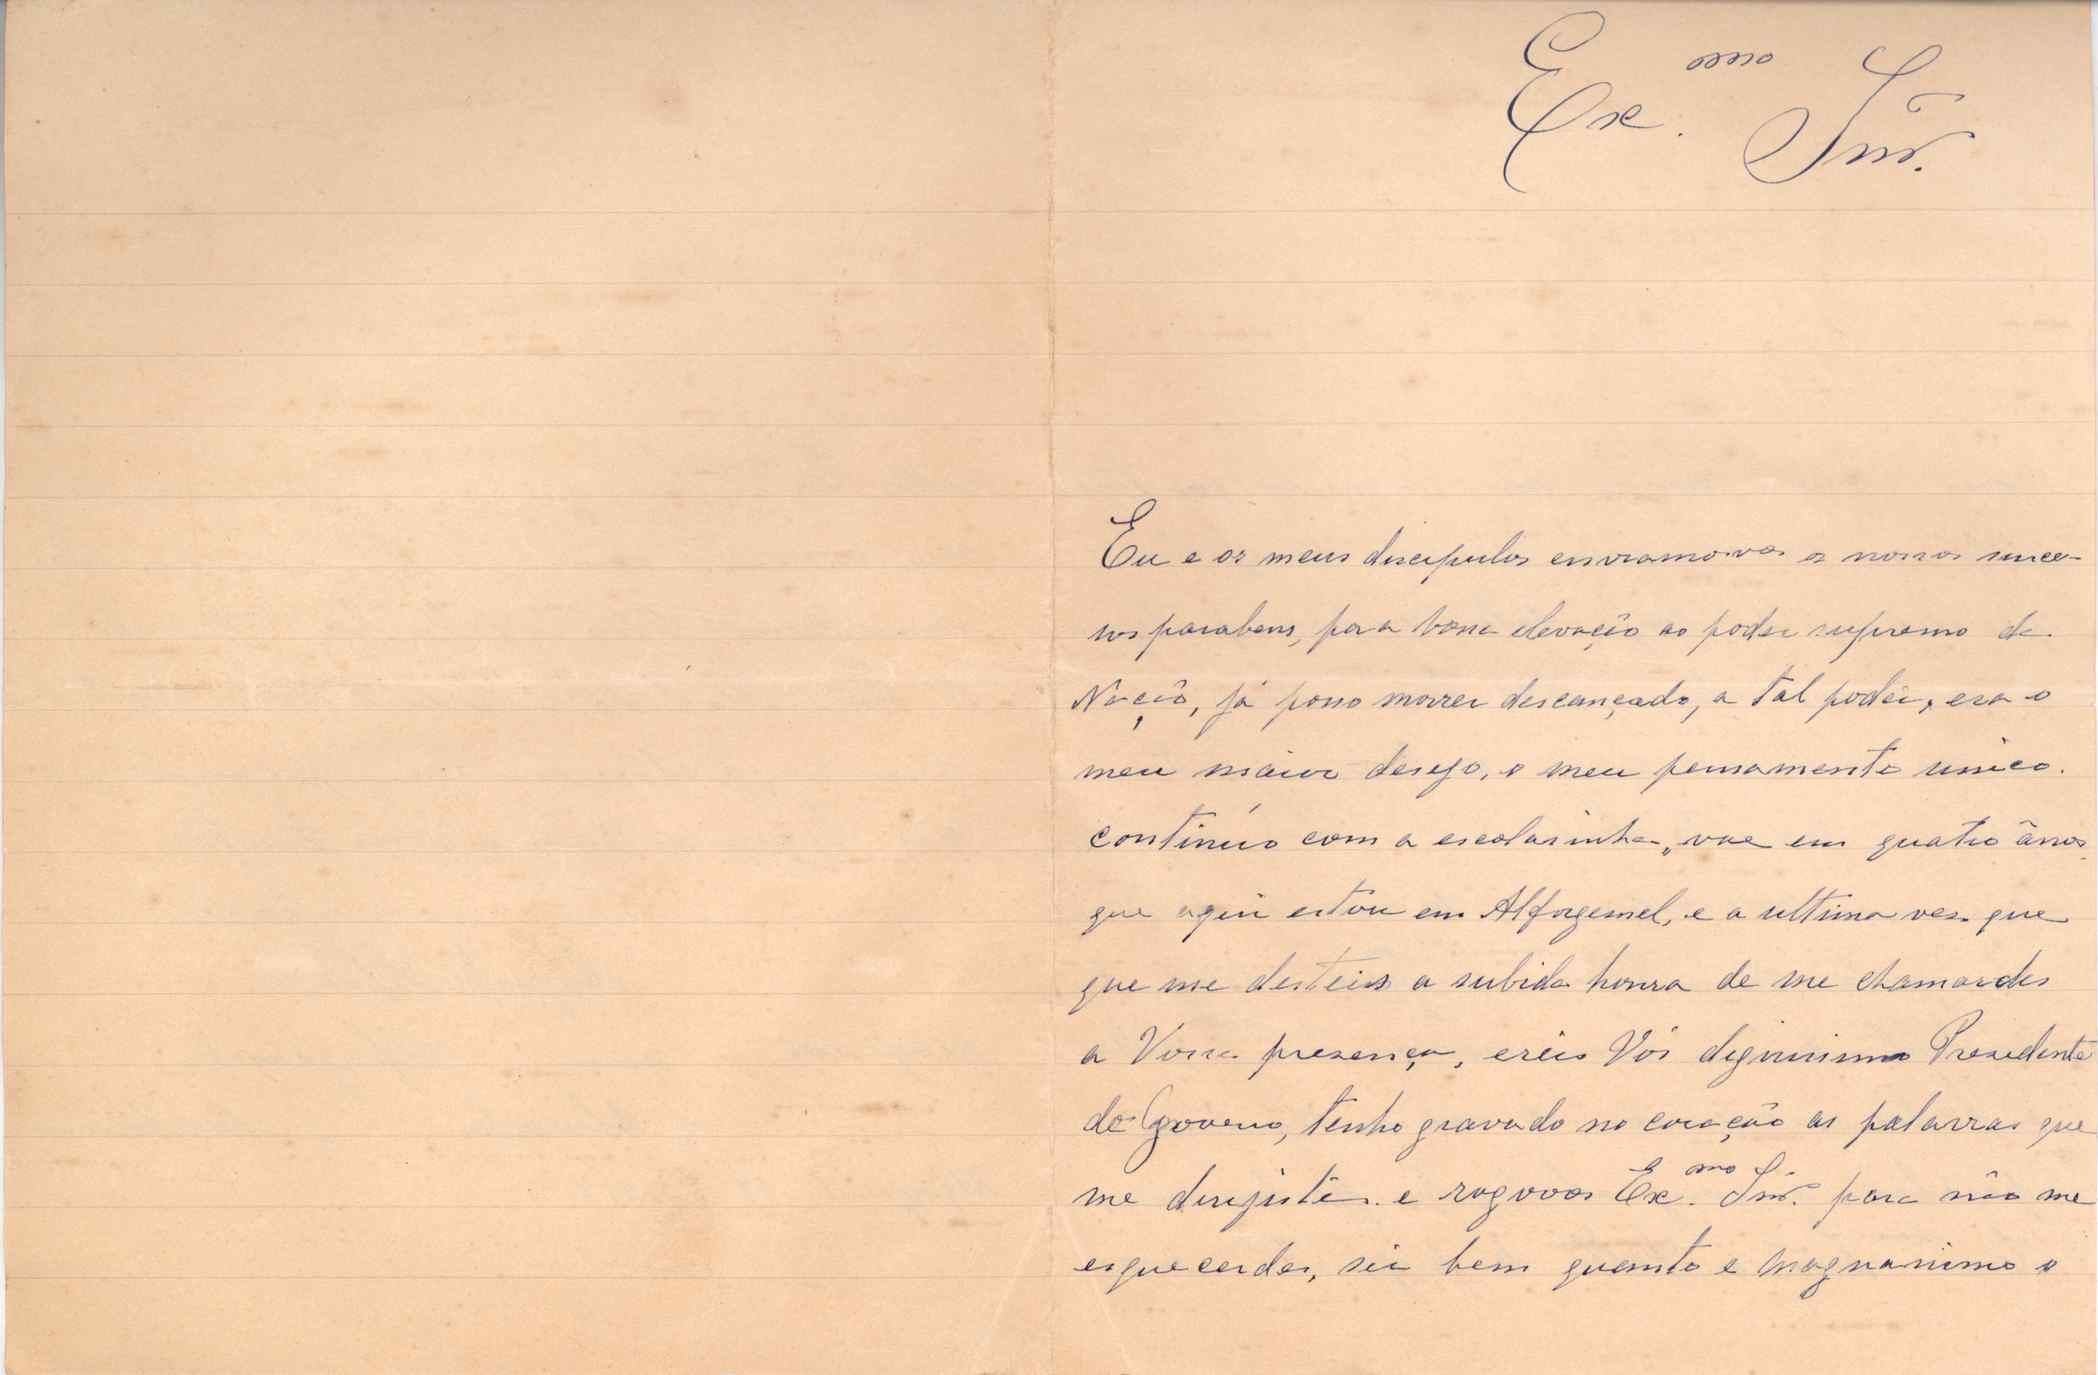 Ex.mo Snr.
Eu e os meus discipulos enviamosvos os nossos since-
ros parabens, para vossa elevação ao poder supremo da
Nação, já posso morrer descançado, a tal poder, era o
meu maior desejo, o meu pensamento unico.
continúo com a escolasinha, vae em quatro ânos
que aqui estou em Alfogemel, e a ultima ves que
que me desteis a subida honra de me chamardes
a Vossa presença, ereis Vós dignissimo Presidente
do Governo, tenho gravado no coração as palavras que
me dirijistes. e rogovos Ex.mo Snr. para não me
esquecerdes, sei bem quanto e magnanimo o